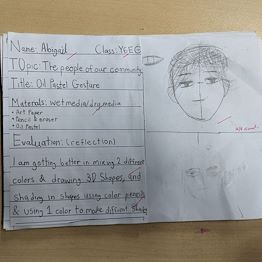 Name: Abigail Class: Y6EG
TOpic: The people of our community
Title: Oil Pastel Gesture
Materals: wet media/dry media
• Art Paper
• Pencil & eraser
• Oil Pastel
Evaluation: (reflection)
I am getting better in mixing 2 different
colors & drawing 3D shapes, and
shading in shapes using color pencils
& using 1 color to make diffirent shades